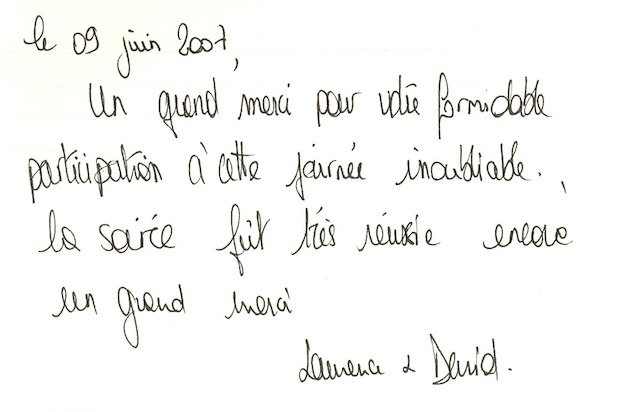 le 09 juin 2007,
Un grand merci pour votre formidable
participation à cette journée inoubliable.
la soirée fût très réussie encore
un grand merci
Laurence & David.